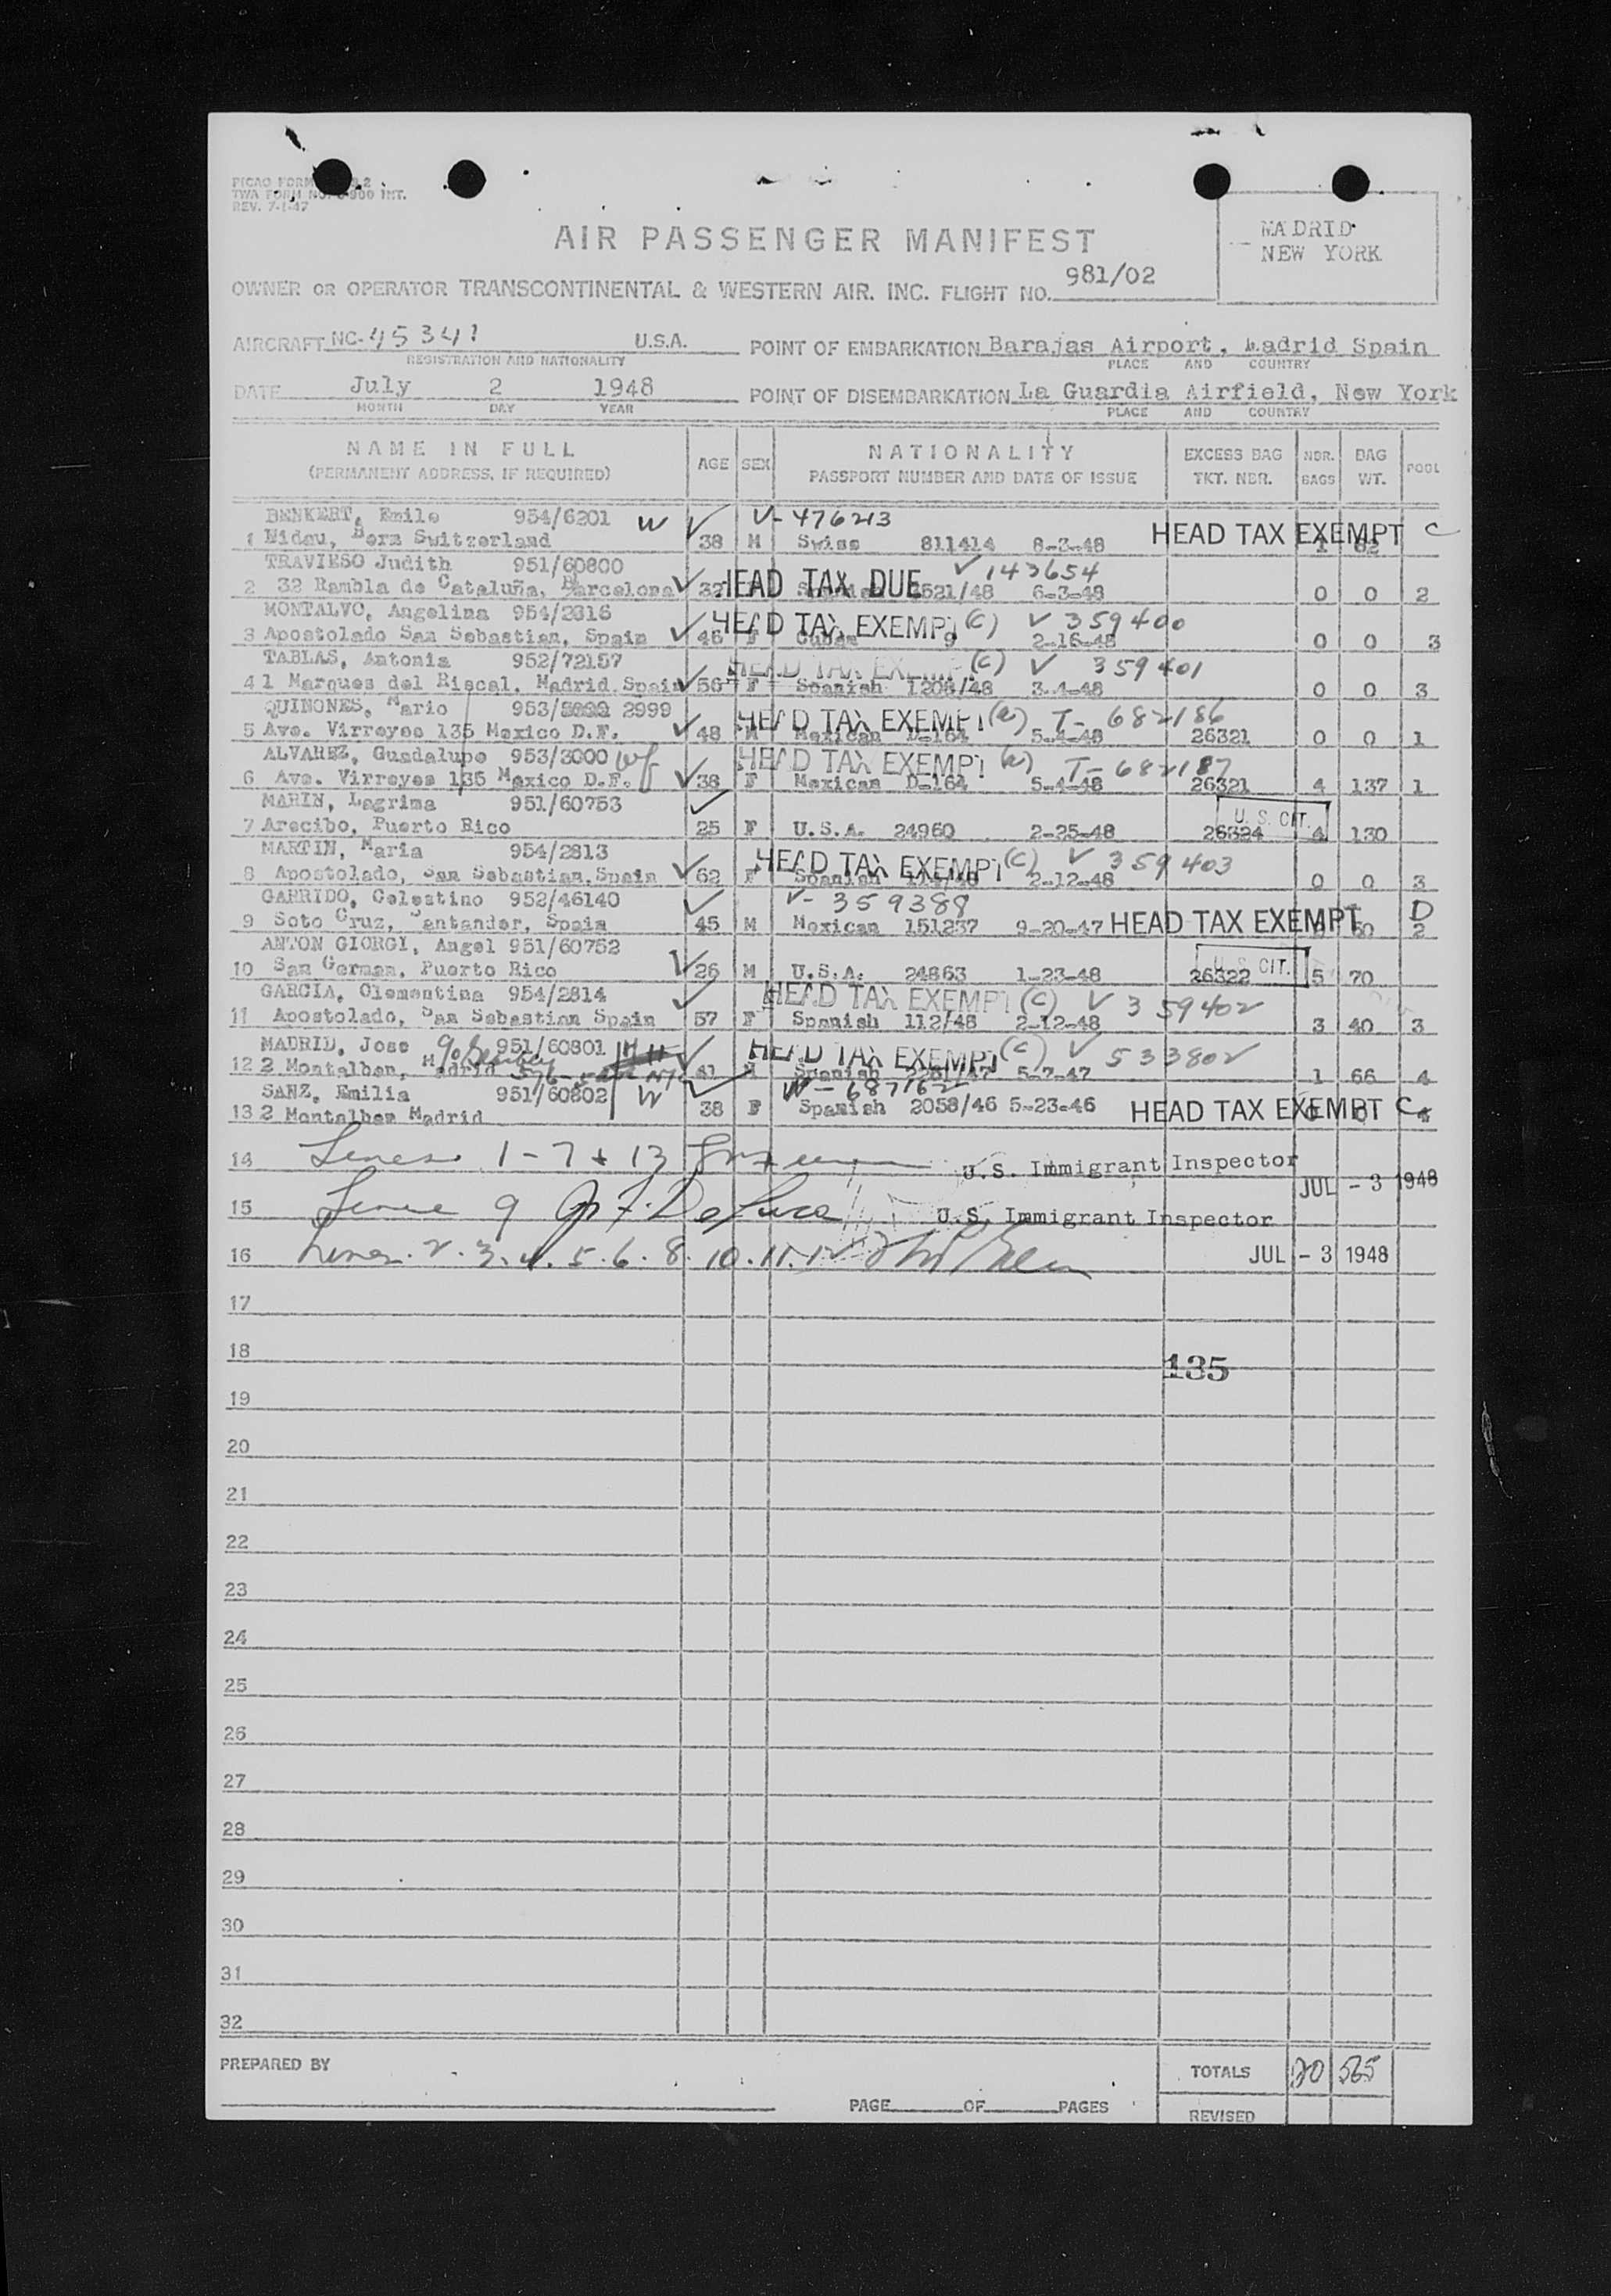 PICAO FORM 2
TWA FORM NO. 900 INT.
REV. 7-1-47
AIR PASSENGER MANIFEST
MADRID
NEW YORK
OWNER OR OPERATOR TRANSCONTINENTAL & WESTERN AIR. INC. FLIGHT NO. 981/02
AIRCRAFT NC-45341 U.S.A. POINT OF EMBARKATION Barajas Airport, Madrid Spain
REGISTRATION AND NATIONALITY PLACE AND COUNTRY
DATE July 2 1948 POINT OF DISEMBARKATION La Guardia Airfield, New York
MONTH DAY YEAR PLACE AND COUNTRY
NAME IN FULL AGE SEX NATIONALITY EXCESS BAG NBR. BAG POOL
(PERMANENT ADDRESS, IF REQUIRED) PASSPORT NUMBER AND DATE OF ISSUE TKT. NBR. BAGS WT.
BENKERT, Emile 954/6201 W V-476213 HEAD TAX EXEMPT C
1 Nidau, Bern Switzerland 38 M Swiss 811414 8-3-48 1 62
TRAVIESO Judith 951/60800 HEAD TAX DUE V 143654
2 32 Rambla de Cataluña, Barcelona 521/48 6-3-48 0 0 2
MONTALVO, Angelina 954/2816 HEAD TAX EXEMPT (C) V 359400
3 Apostolado San Sebastian, Spain 46 F Cuban 9 2-16-48 0 0 3
TABLAS, Antonia 952/72157 HEAD TAX EXEMPT (C) V 359401
4 1 Marques del Riscal. Madrid.Spain 56 F Spanish 1206/48 3-4-48 0 0 3
QUINONES, Mario 953/ 2999 HEAD TAX EXEMPT (e) T-682186
5 Ave. Virreyes 135 Mexico D.F. 48 M Mexican D-164 5-4-48 26321 0 0 1
ALVAREZ, Guadalupe 953/3000 wf HEAD TAX EXEMPT (e) T-682187
6 Ave. Virreyes 135 Mexico D.F. 38 F Mexican D-164 5-4-48 26321 4 137 1
MARIN, Lagrima 951/60753 U.S. CIT.
7 Arecibo, Puerto Rico 25 F U.S.A. 24960 2-25-48 26324 4 130
MARTIN, Maria 954/2813 HEAD TAX EXEMPT (C) V 359403
8 Apostolado, San Sebastian.Spain 62 F Spanish 2-12-48 0 0 3
GARRIDO, Celestino 952/46140 V-359388 HEAD TAX EXEMPT D
9 Soto Cruz, Santander, Spain 45 M Mexican 151237 9-20-47 2
ANTON GIORGI, Angel 951/60752 U.S. CIT.
10 San German, Puerto Rico 26 M U.S.A. 24863 1-23-48 26322 5 70
GARCIA, Clementina 954/2814 HEAD TAX EXEMPT (C) V 359402
11 Apostolado, San Sebastian Spain 57 F Spanish 112/48 2-12-48 3 40 3
MADRID, Jose 951/60801 HEAD TAX EXEMPT (C) V 533802
12 2 Montalban, Madrid 41 M Spanish 5-7-47 1 66 4
SANZ, Emilia 951/60802 W W-687162
13 2 Montalban Madrid 38 F Spanish 2058/46 5-23-46 HEAD TAX EXEMPT C 4
14 Lines 1-7 + 13 U.S. Immigrant Inspector
JUL - 3 1948
15 Line 9 U.S. Immigrant Inspector
16 Lines 2. 3. 4. 5. 6. 8. 10. 11. 12 JUL - 3 1948
17
18 135
19
20
21
22
23
24
25
26
27
28
29
30
31
32
PREPARED BY TOTALS 20 565
PAGE OF PAGES REVISED